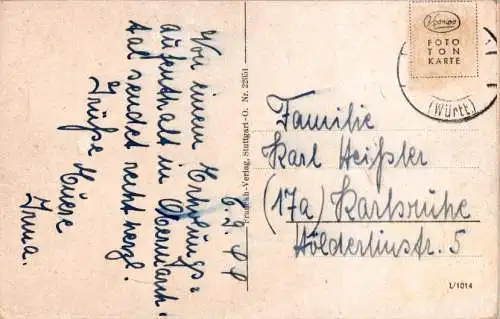 Von einem Erholungs=
aufenthalt in Obermarch=
tal sendet recht herzl.
Grüße Euere
Irma.
Franckh-Verlag, Stuttgart-O. Nr. 22051
FOTO
TON
KARTE
(Württ)
Familie
Karl Heißler
(17a) Karlsruhe
Hölderlinstr. 5
L/1014